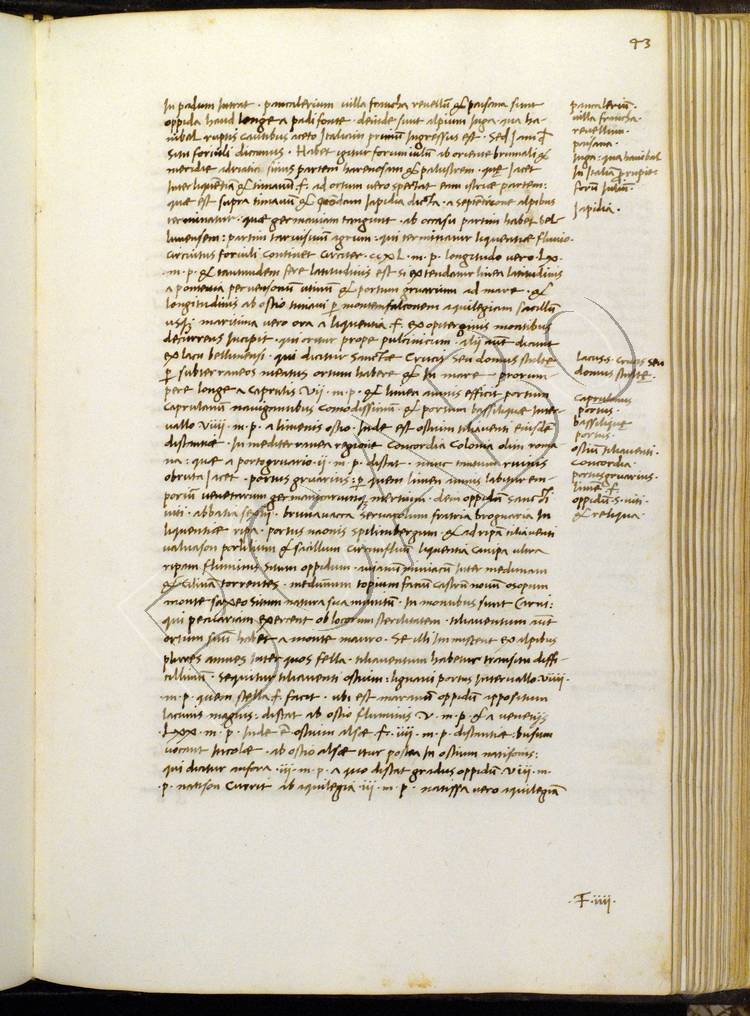 43
In padum Intrat · pancalerium villa francha revellū & paisana sunt
oppida haud longe a padi fonte · deinde sunt alpium Iuga · qua ha-
nibal ruptis cautibus aceto Italiam primū Ingressus est · Sed Iam de
situ foriiuli dicamus · Habet igitur forumiuliū ab oriente brumali &
meridie adriatici sinus partem harenosam & palustrem · que Iacet
Inter liquentia & timavū · f · ad ortum vero spectat eum istrie partem:
que est supra timavū & quōdam Iapidia dicta · a septētrione alpibus
terminatur · que germaniam tangunt · ab occasu partim habet Bel-
lunensem : partim tarvisinū agrum : qui terminatur liquentiae fluvio ·
Circuitus foriiuli continet circiter · ccxl · m · p · longitudo vero · lxx ·
m · p · & tantundem fere latitudinis est si extendatur linea latitudinis
a pontevia per venzonū utinū & portum gruarium ad mare · &
longitudinis ab ostio timavi p montemfalconem aquilegiam sacillū
usq; maritima vero ora a liquentia · f · ex opiterginis montibus
decurrens Incipit · qui oritur prope pulcinicum · alij aūt dicunt
ex lacu bellunensi · qui dicitur Sanctae Crucis seu domus stulte
p subterraneos meatus ortum habere & In mare prorum-
pere longe a Caprulis vii · m · p · & linea amnis efficit portum
Caprulanum navigantibus comodissimū · & portum bassiliquae Inter
vallo viiii · m · p · a linenis ostio · Inde est ostium tiliaventi eiusdē
distantiae · In mediterranea regione Concordia Colonia olim roma-
na : quae a portogruario · ii · m · p · distat · nunc tantum ruinis
obruta Iacet · portus gruarius : p quem linen amnis labitur em-
porium venetarum germanicarumq mercium · dem oppidū sancti
viti · abbatia sexti · brunavacca servavolum fratria prognaria In
liquentiae ripa · portus naonis spilimbergum & ad ripā tiliaventi
valvason & sacillum circumfluū liquentia caneva ultra
ripam fluminis situm oppidum · avianū maniacū Inter medunam
& Cilinā torrentes · medunum topium facū castrū novū osopum
monte saxeo situm natura sua munitū · In montibus sunt Carni:
qui pecuariam exercent ob locorum sterilitatem · tiliaventum aūt
ortum suū habet a monte mauro · Se illi Inmiscent ex alpibus
plures amnes Inter quos fella · tiliaventum habetur transitu diffi-
cillimū · sequitur tiliaventi ostium : lignani portus Intervallo · viiii ·
m · p · quem stella · f · facit · ubi est maranū oppidū appositum
lacunis magius : distat ab ostio fluminis v · m · p · & a venetijs
· lxxx · m · p · Inde est ostium alsae f · iiii · m · p · distantiae : busum
vocant Incolae · ab ostio alsae itur postea In ostium natisonis :
qui dicitur anfora · iii · m · p · a quo distat gradus oppidū viii · m ·
· p · natison currit ab aquilegia iii · m · p · natissa vero aquilegiā
pancaleriū ·
villa francha ·
revellum ·
paisana ·
Iuga : qua hanibal
In italiā
forū Iuliū ·
Iapidia ·
lacus s · Crucis seu
domus stulte ·
Caprulanus
portus ·
bassilique
portus ·
ostiū tiliaventi ·
concordia ·
portus gruarius ·
linen · f ·
oppidū · s · viti ·
& reliqua ·
· F · iiii ·